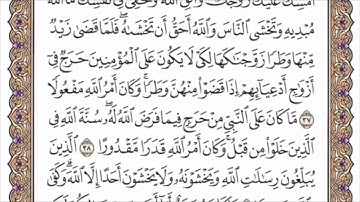 أَمْسِكْ عَلَيْكَ زَوْجَكَ وَاتَّقِ اللَّهَ وَتُخْفِي فِي نَفْسِكَ مَا اللَّهُ
مُبْدِيهِ وَتَخْشَى النَّاسَ وَاللَّهُ أَحَقُّ أَن تَخْشَاهُ فَلَمَّا قَضَىٰ زَيْدٌ
مِّنْهَا وَطَرًا زَوَّجْنَاكَهَا لِكَيْ لَا يَكُونَ عَلَى الْمُؤْمِنِينَ حَرَجٌ فِي
أَزْوَاجِ أَدْعِيَائِهِمْ إِذَا قَضَوْا مِنْهُنَّ وَطَرًا وَكَانَ أَمْرُ اللَّهِ مَفْعُولًا
٣٧ مَّا كَانَ عَلَى النَّبِيِّ مِنْ حَرَجٍ فِيمَا فَرَضَ اللَّهُ لَهُ سُنَّةَ اللَّهِ فِي
الَّذِينَ خَلَوْا مِن قَبْلُ وَكَانَ أَمْرُ اللَّهِ قَدَرًا مَّقْدُورًا ٣٨ الَّذِينَ
يُبَلِّغُونَ رِسَالَاتِ اللَّهِ وَيَخْشَوْنَهُ وَلَا يَخْشَوْنَ أَحَدًا إِلَّا اللَّهَ وَكَفَىٰ